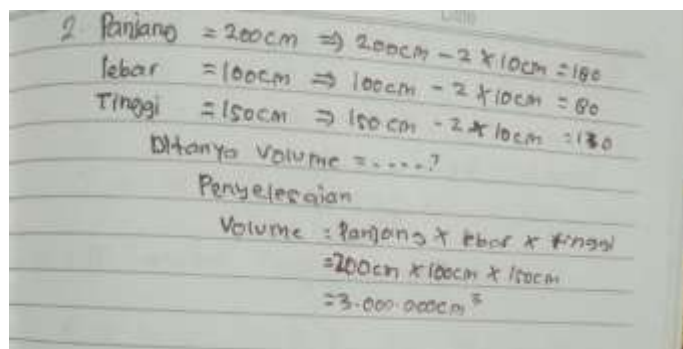 2. Panjang = 200cm ⇒ 200cm - 2 x 10cm = 180
lebar = 100cm ⇒ 100cm - 2 x 10cm = 80
Tinggi = 150cm ⇒ 150cm - 2 x 10cm = 130
Ditanya Volume = ....?
Penyelesaian
Volume : Panjang x lebar x tinggi
= 200cm x 100cm x 150cm
= 3.000.000cm³